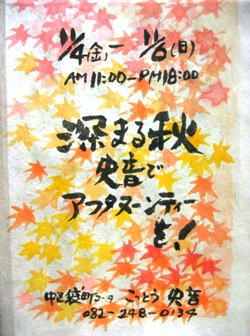 11/4(金)ー 11/6(日)
AM 11:00-PM 18:00
深まる秋
史音で
アフタヌーンティー
を!
中区袋町3-9 こっとう 史音
082-248-0134